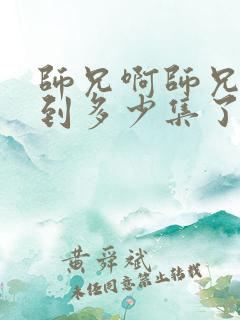 師兄啊師兄
到多少集了
黄舜斌
未经同意禁止转载